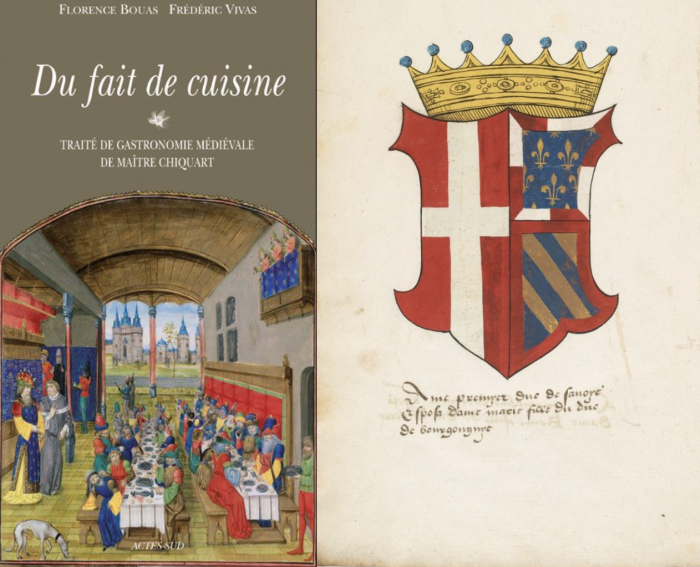 FLORENCE BOUAS FRÉDÉRIC VIVAS
Du fait de cuisine
TRAITÉ DE GASTRONOMIE MÉDIÉVALE
DE MAÎTRE CHIQUART
ACTES SUD
Ame premyer duc de savoye
Esposa dame marie fille du duc
de bourgongnye